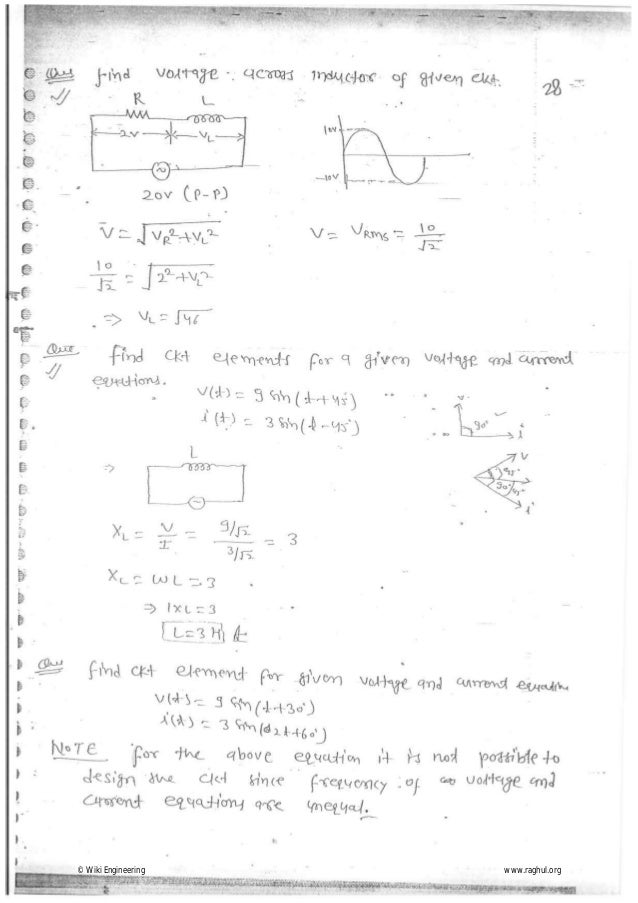 Que find voltage across inductor of given ckt. 28
R L
2V VL
20V (P-P)
10V
-10V
V = √VR²+VL² V = VRMS = 10/√2
10/√2 = √2²+VL²
⇒ VL = √46
Que find ckt elements for a given voltage and current
equations.
v(t) = 9 sin(t+45°)
i(t) = 3 sin(t-45°)
v 90° i
v 45° 90° 45° i
⇒ L
XL = V/I = 9/√2 / 3/√2 = 3
XL = WL = 3
⇒ 1×L = 3
L = 3 H
Que find ckt element for given voltage and current equation
v(t) = 9 sin(t+30°)
i(t) = 3 sin(2t+60°)
NOTE for the above equation it is not possible to
design the ckt since frequency of voltage and
current equations are unequal.
© Wiki Engineering www.raghul.org